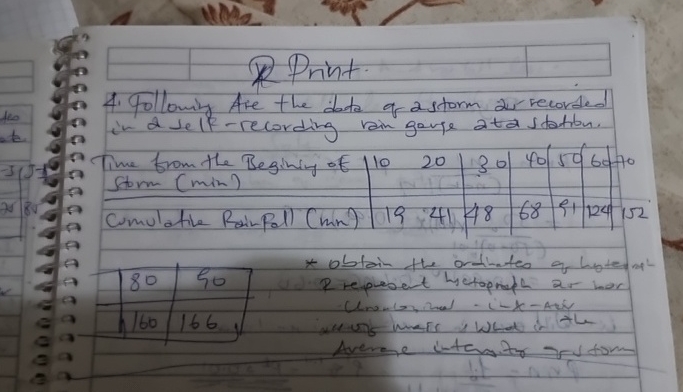 Print.
4. Following Are the data of a storm as recorded
in a self-recording rain gauge at a station.
Time from the Begining of 10 20 30 40 50 60 70
Storm (min)
Cumulative Rainfall (mm) 19 41 48 68 91 124 152
80 90
160 166
* obtain the ordinates of
& represent hyetograph as bar
in X-Axis
what is the
Average intensity of storm